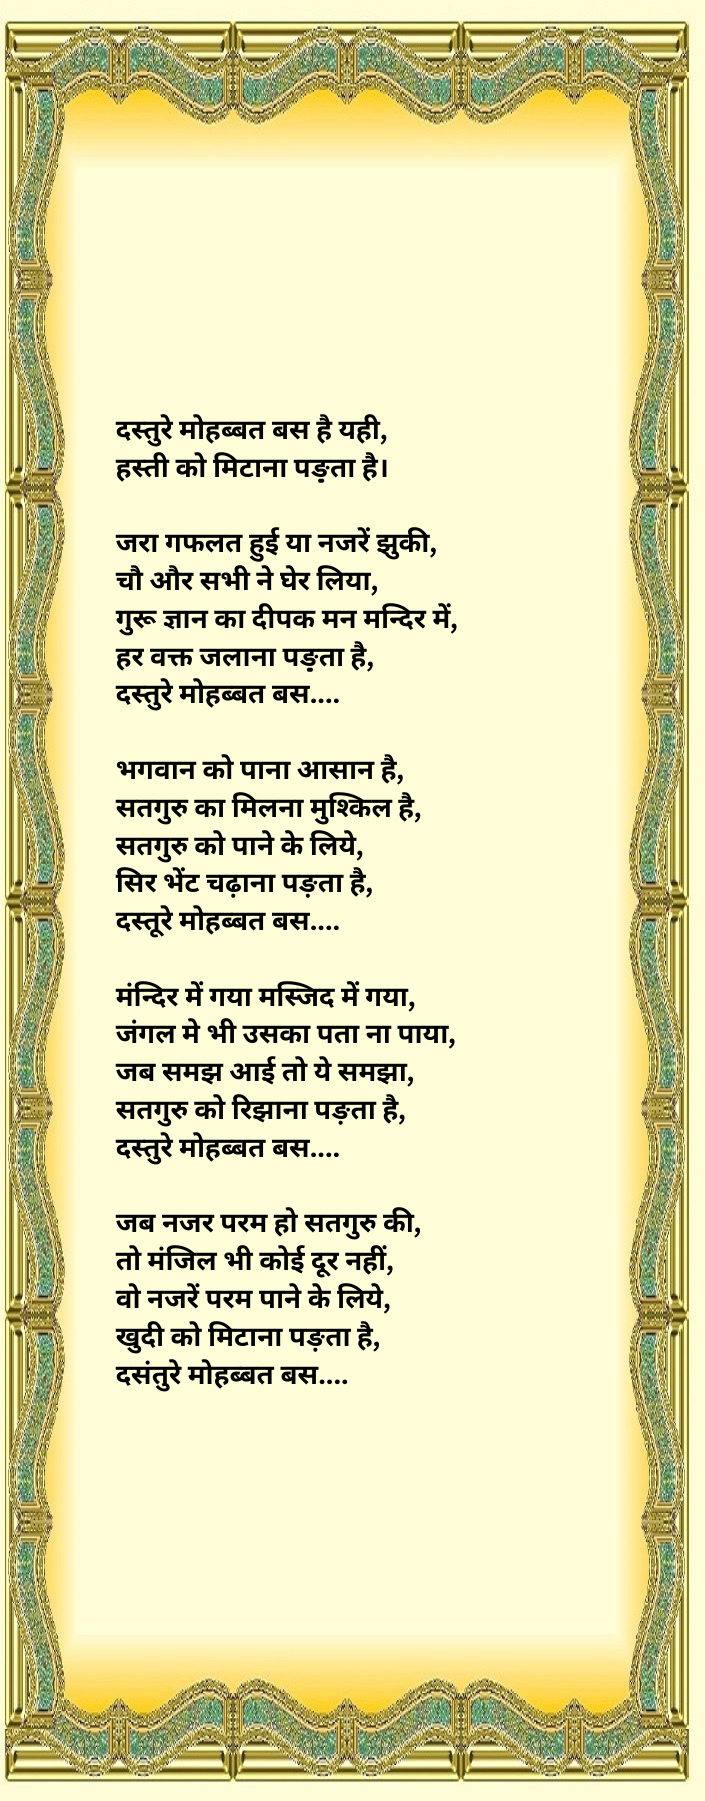 दस्तुरे मोहब्बत बस है यही,
हस्ती को मिटाना पड़ता है।
जरा गफलत हुई या नजरें झुकी,
चौ और सभी ने घेर लिया,
गुरू ज्ञान का दीपक मन मन्दिर में,
हर वक्त जलाना पड़ता है,
दस्तुरे मोहब्बत बस....
भगवान को पाना आसान है,
सतगुरु का मिलना मुश्किल है,
सतगुरु को पाने के लिये,
सिर भेंट चढ़ाना पड़ता है,
दस्तूरे मोहब्बत बस....
मंन्दिर में गया मस्जिद में गया,
जंगल मे भी उसका पता ना पाया,
जब समझ आई तो ये समझा,
सतगुरु को रिझाना पड़ता है,
दस्तुरे मोहब्बत बस....
जब नजर परम हो सतगुरु की,
तो मंजिल भी कोई दूर नहीं,
वो नजरें परम पाने के लिये,
खुदी को मिटाना पड़ता है,
दसंतुरे मोहब्बत बस....